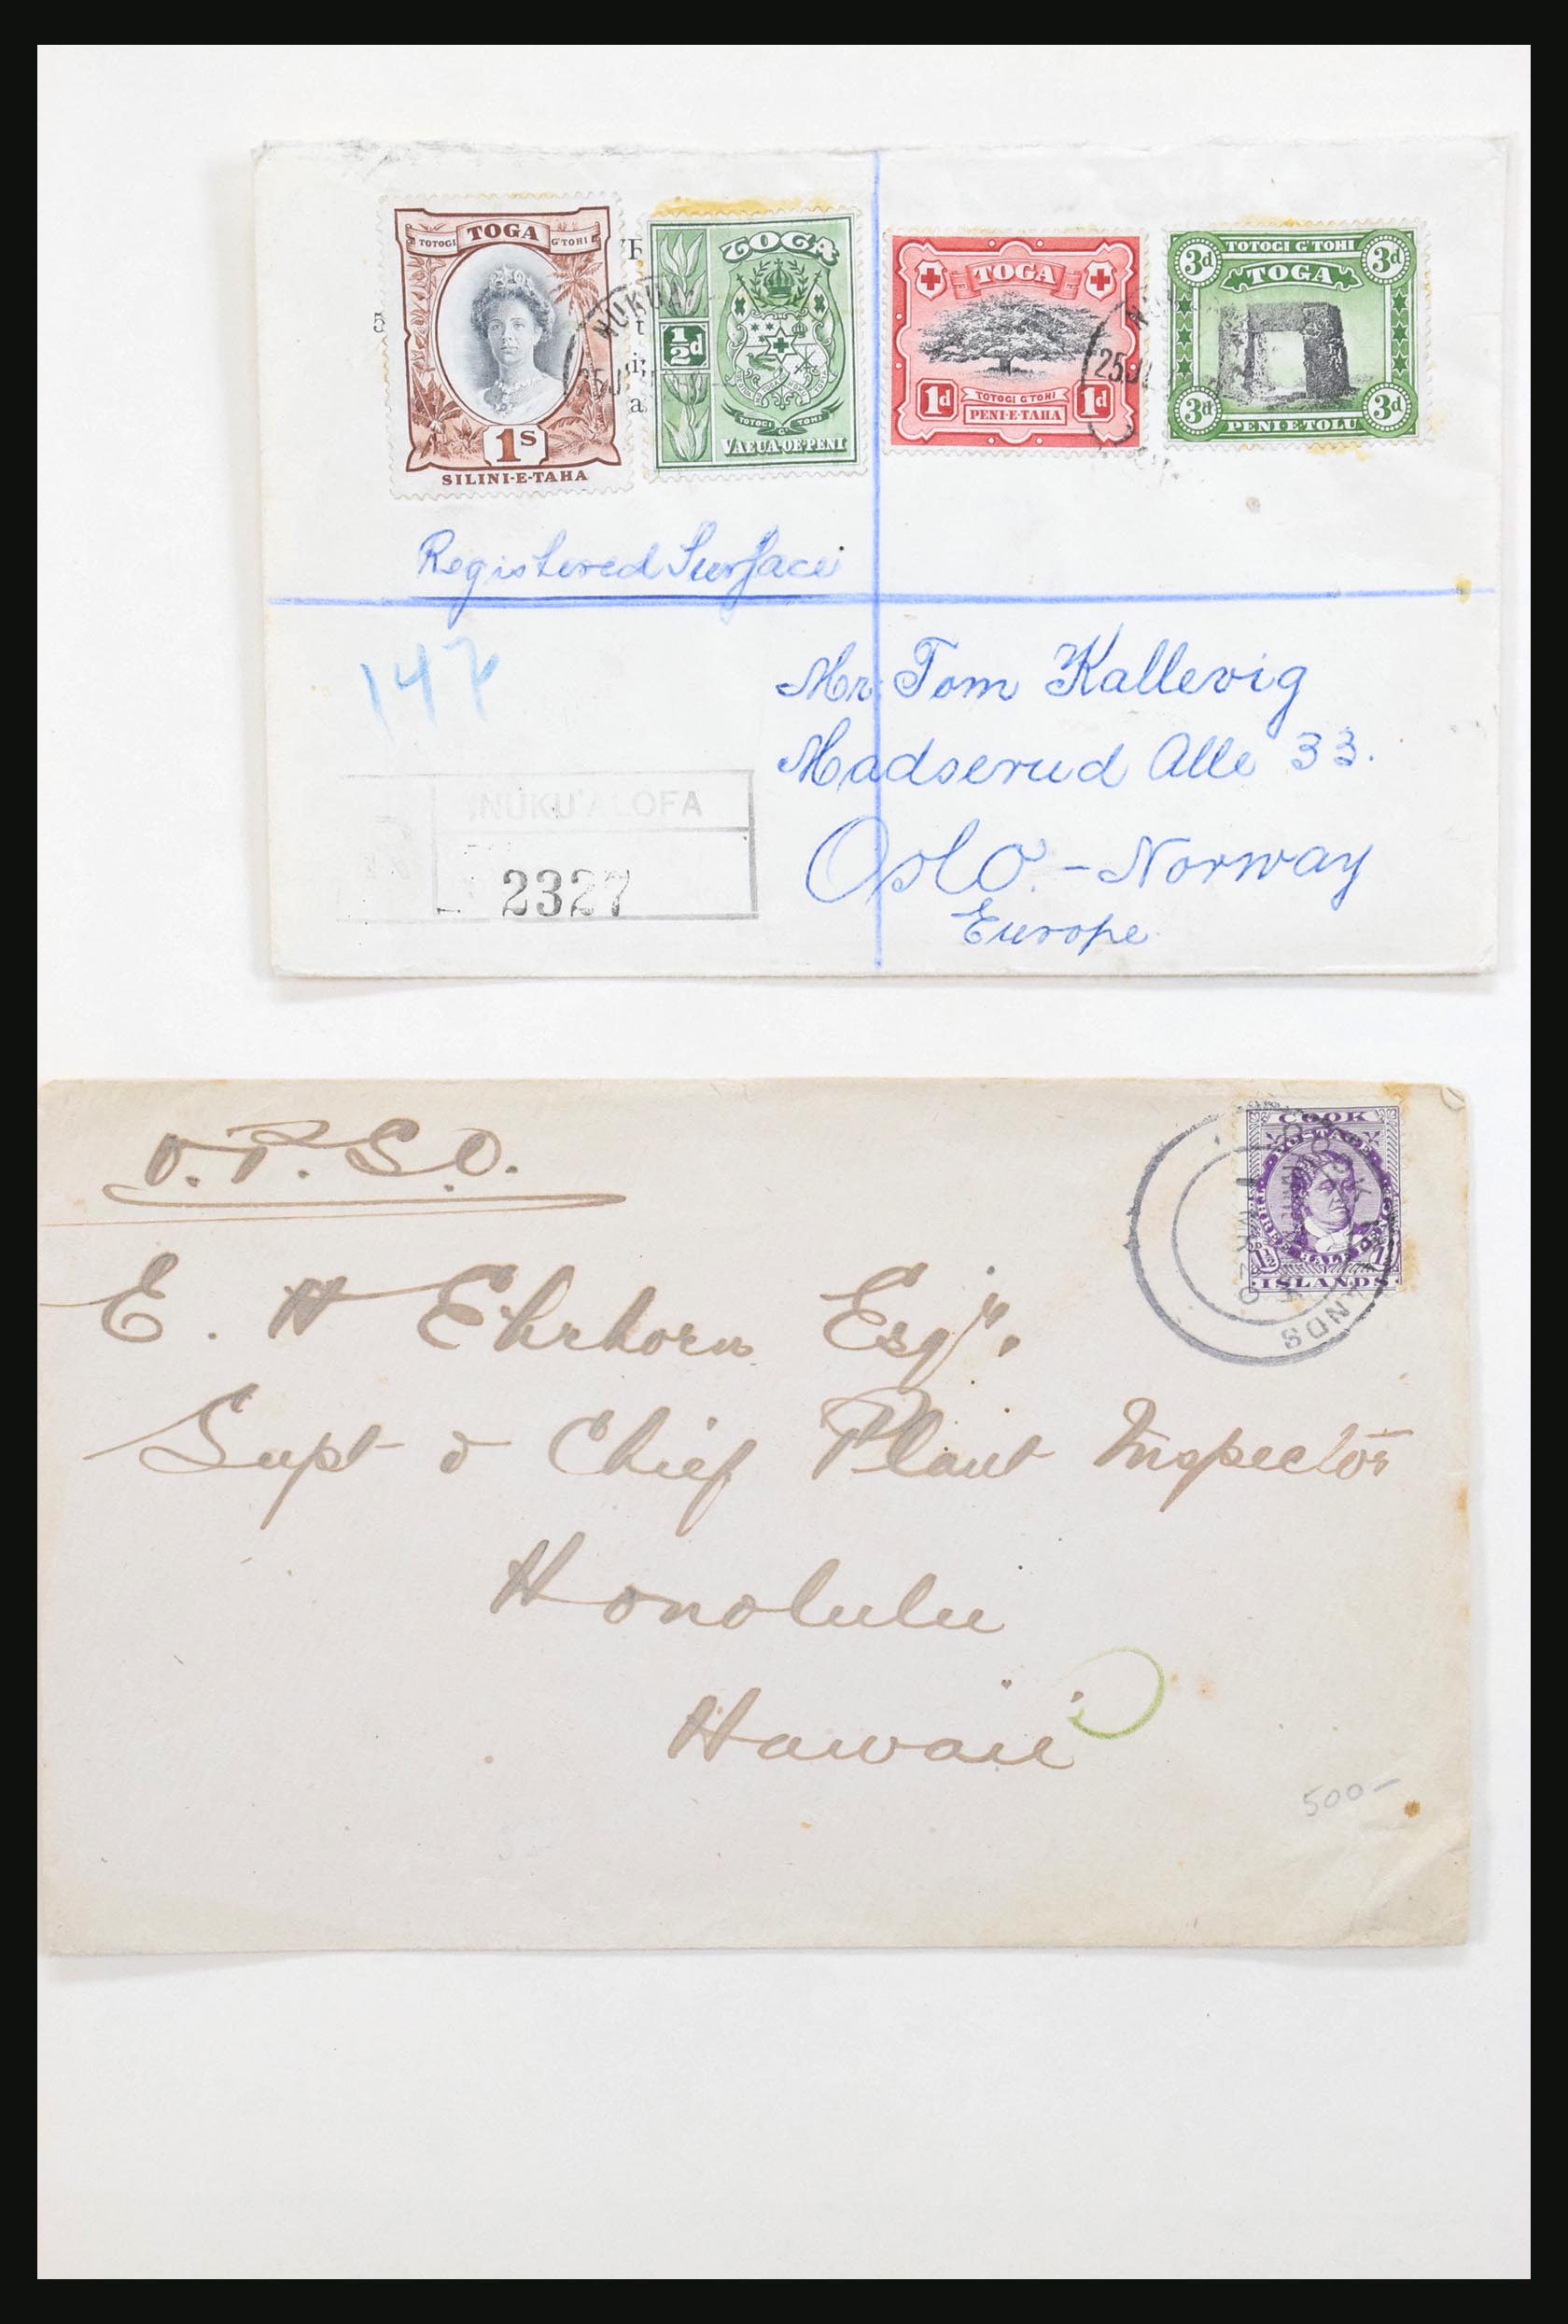 TOTOGI TOGA G'TOHI
1S
SILINI-E-TAHA
TOGA
½d
TOTOGI G' TOHI
VAEUA-OE-PENI
TOGA
1d TOTOGI G'TOHI 1d
PENI-E-TAHA
TOTOGI G'TOHI
3d TOGA 3d
3d PENI-E-TOLU 3d
5
25 J
25 JU
Registered Surface
147
Mr. Tom Kallevig
Madserud Alle 33.
Oslo. - Norway
Europe
NUKU'ALOFA
2327
O.P.S.O.
COOK
POSTAGE
THREE HALF PENCE
1½
ISLANDS
COOK ISLANDS
1 MR 20
E. H Ehrhorn Esqr.
Supt & Chief Plant Inspector
Honolulu
Hawaii
500-